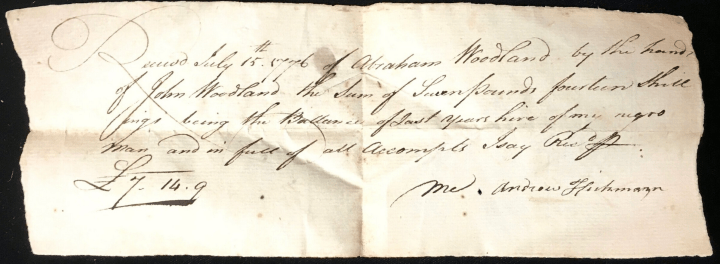 Receivd July 15th 1776 of Abraham Woodland by the hands
of John Woodland the Sum of Seven pounds fourteen Shill
ings being the Ballance of Last Years hire of my negro
man and in full of all Accompts I say Recd
£7. 14. 9 me. Andrew Hickmann